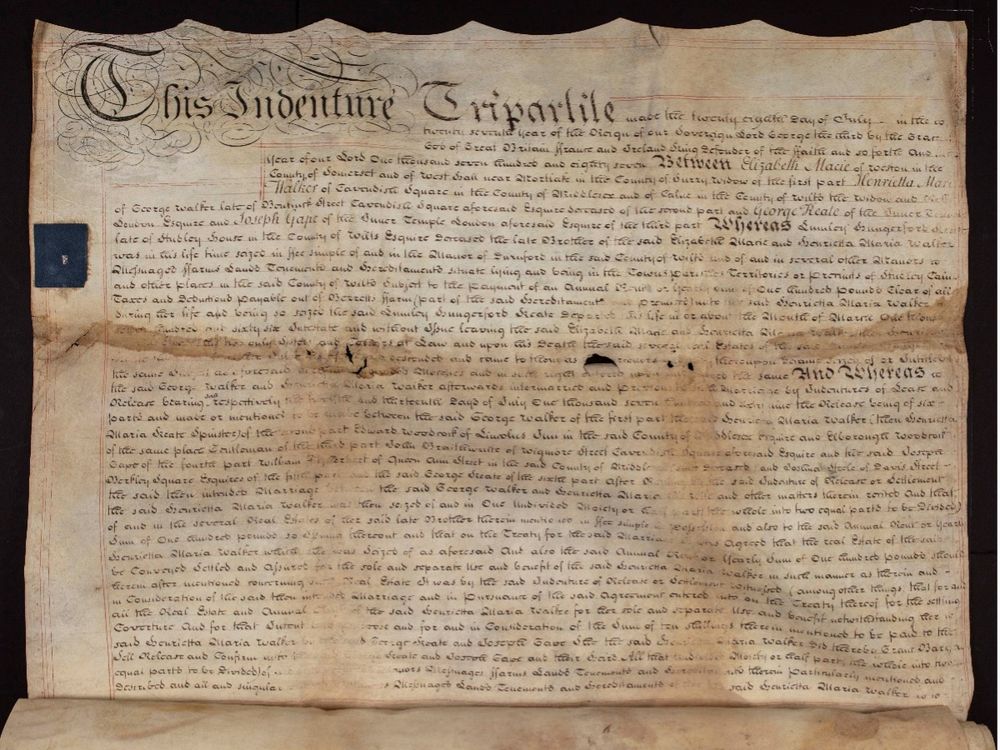 This Indenture Tripartite made the twenty eighth Day of July in the
twenty seventh year of the Reign of our Sovereign Lord George the third by the Grace
God of Great Britain ffrance and Ireland King Defender of the ffaith and so forth And in
Year of our Lord One thousand seven hundred and eighty seven Between Elizabeth Macie of Weston in the
County of Somerset and of West Hall near Mortlake in the County of Surry Widow of the first part Henrietta Mari
Walker of Cavendish Square in the County of Middlesex and of Calne in the County of Wilts the Widow and
of George Walker late of Bentinck Street Cavendish Square aforesaid Esquire deceased of the second part and George Keate of the Inner
London Esquire and Joseph Gape of the Inner Temple London aforesaid Esquire of the third part Whereas Lumley Hungerford
late of Studley House in the County of Wilts Esquire deceased the late Brother of the said Elizabeth Macie and Henrietta Maria Walker
was in his life time seized in ffee simple of and in the Manor of Durnford in the said County of Wilts and of and in several other Manors
Messuages ffarms Lands Tenements and Hereditaments situate lying and being in the Towns Parishes Territories or Precincts of Studley
and other Places in the said County of Wilts Subject to the Payment of an Annual Rent or Yearly of One hundred Pounds Clear of all
Taxes and Deductions Payable out of ffarm (part of the said Hereditaments and Premises) unto the said Henrietta Maria Walker
during her life and being so seized the said Lumley Hungerford Keate Departed this life in or about the Month of One thous
hundred and sixty six Intestate and without Issue leaving the said Elizabeth Macie and Henrietta Maria
his only Sisters and at Law and upon his Death the said several Estates of the said
descended and came to them as thereupon became seized of or Intitled
the same as aforesaid the same And Whereas
the said George Walker and Henrietta Maria Walker afterwards intermarried and Marriage by Indentures of Lease and
Release bearing respectively the and thirteenth Days of July One thousand seven the Release being of six
parts and made or mentioned to be made between the said George Walker of the first part the said Henrietta Maria Walker (then Henrietta
Maria Keate Spinster) of the second part Edward Woodcock of Lincolns Inn in the said County of Middlesex Esquire and Elborough Woodcock
of the same place Gentleman of the third part John Braithwaite of Wigmore Street Cavendish Square aforesaid Esquire and the said Joseph
Gape of the fourth part William of Queen Ann Street in the said County of and Joshua Steele of Davis Street
Berkley Square Esquires of the fifth part and the said George Keate of the sixth part After the said Indenture of Release or Settlement
the said then intended Marriage the said George Walker and Henrietta Maria and other matters therein recited And that
the said Henrietta Maria Walker was then seized of and in One Undivided Moiety or half part (the whole into two equal parts to be Divided)
of and in the several Real Estates of her said late Brother therein mentioned in ffee simple in Possession and also to the said Annual Rent or Yearly
Sum of One hundred pounds so thereout and that on the Treaty for the said Marriage was Agreed that the real Estate of the said
Henrietta Maria Walker which she was Seized of as aforesaid And also the said Annual or Yearly Sum of One hundred Pounds should
be Conveyed Settled and Assured for the sole and separate Use and benefit of the said Henrietta Maria Walker in such manner as therein and
herein after mentioned concerning Real Estate It was by the said Indenture of Release or Settlement Witnessed (among other things) that for and
in Consideration of the said then intended Marriage and in Pursuance of the said Agreement entered into on the Treaty thereof for the settling
all the Real Estate and Annual of the said Henrietta Maria Walker for her sole and separate Use and benefit notwithstanding her
Coverture And for that Intent and for and in Consideration of the Sum of ten shillings therein mentioned to be paid to the
said Henrietta Maria Walker by George Keate and Joseph Gape She the said Maria Walker Did thereby Grant Bargain
Sell Release and Confirm unto Keate and Joseph Gape and their All that Undivided Moiety or half part (the whole into two
equal parts to be Divided) of Messuages ffarms Lands Tenements and therein Particularly mentioned and
Described and all and singular Messuages Lands Tenements and Hereditaments said Henrietta Maria Walker